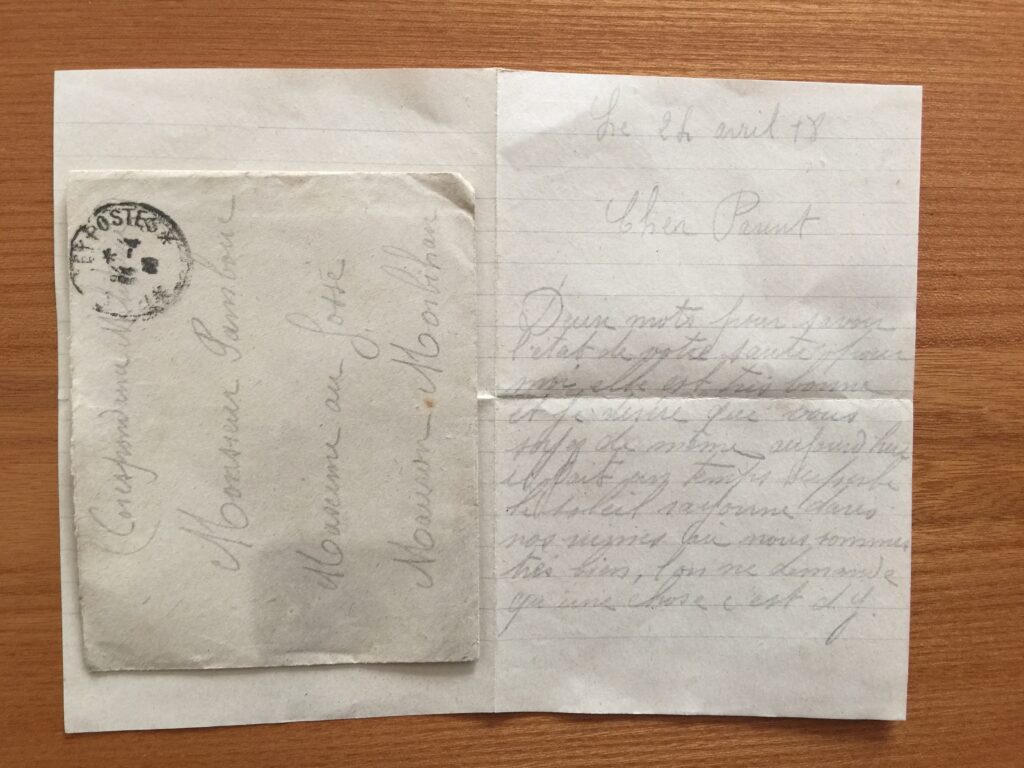 Correspondance
Monsieur Pambour
Meucenne au Gosse
Mauron Morbihan
POSTES *
Le 24 avril 18
Cher Parent
D'eun mots pour savoir
l'état de votre santé pour
moi elle est très bonne
et je désire que vous
soyez de même aujourd'hui
il fait un temps superbe
le soleil rayonne dans
nos ruines ou nous sommes
très bien, l'on ne demande
qu'une chose c'est d'y